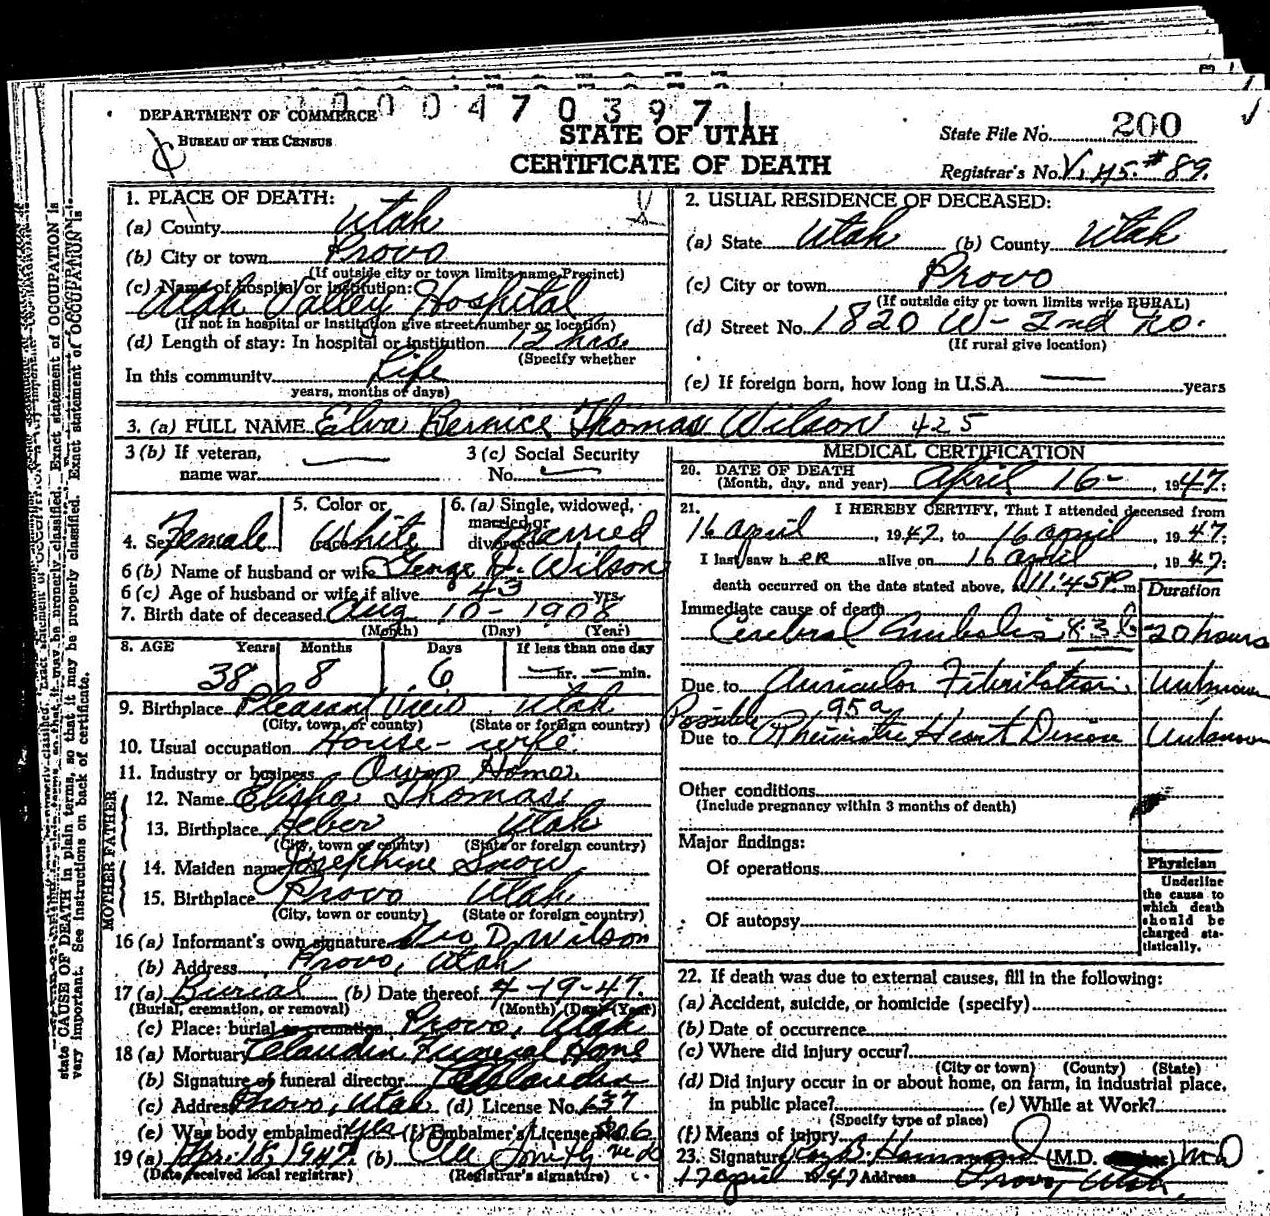 0004703971
DEPARTMENT OF COMMERCE
BUREAU OF THE CENSUS
STATE OF UTAH
CERTIFICATE OF DEATH
State File No. 200
Registrar's No. V. 45. #89.
1. PLACE OF DEATH:
(a) County Utah
(b) City or town Provo
(If outside city or town limits name Precinct)
(c) Name of hospital or institution:
Utah Valley Hospital
(If not in hospital or institution give street number or location)
(d) Length of stay: In hospital or institution 12 hrs.
(Specify whether
In this community Life
years, months or days)
2. USUAL RESIDENCE OF DECEASED:
(a) State Utah (b) County Utah
(c) City or town Provo
(If outside city or town limits write RURAL)
(d) Street No. 1820 W- 2nd No.
(If rural give location)
(e) If foreign born, how long in U.S.A. years
3. (a) FULL NAME Elva Bernice Thomas Wilson 425
3 (b) If veteran,
name war
3 (c) Social Security
No.
4. Sex Female
5. Color or
race White
6. (a) Single, widowed,
married or
divorced married
6 (b) Name of husband or wife George D. Wilson
6 (c) Age of husband or wife if alive 43 yrs.
7. Birth date of deceased Aug 10-1908
(Month) (Day) (Year)
8. AGE Years Months Days If less than one day
38 8 6 hr. min.
9. Birthplace Pleasant View Utah
(City, town, or county) (State or foreign country)
10. Usual occupation House-wife
11. Industry or business Own Home
FATHER
12. Name Elisha Thomas
13. Birthplace Heber Utah
(City, town or county) (State or foreign country)
MOTHER
14. Maiden name Josephine Snow
15. Birthplace Provo Utah
(City, town or county) (State or foreign country)
16 (a) Informant's own signature Geo D. Wilson
(b) Address Provo, Utah
17 (a) Burial (b) Date thereof 4-19-47.
(Burial, cremation, or removal) (Month) (Day) (Year)
(c) Place: burial or cremation Provo, Utah
18 (a) Mortuary Claudin Funeral Home
(b) Signature of funeral director Claudin
(c) Address Provo, Utah (d) License No. 137
(e) Was body embalmed? yes (f) Embalmer's License 206
19 (a) Apr. 18, 1947. (b) Smith
(Date received local registrar) (Registrar's signature)
MEDICAL CERTIFICATION
20. DATE OF DEATH
(Month, day, and year) April 16- , 1947.
21. I HEREBY CERTIFY, That I attended deceased from
16 april , 1947, to 16 april , 1947;
I last saw her alive on 16 april , 1947;
death occurred on the date stated above, at 11:45P m.
Duration
Immediate cause of death
Cerebral Embolis 83b 20 hours
Due to Auricular Fibrillation Unknown
95a
Possible
Due to Rheumatic Heart Disease Unknown
Other conditions
(Include pregnancy within 3 months of death)
Major findings:
Of operations
Of autopsy
Physician
Underline
the cause to
which death
should be
charged sta-
tistically.
22. If death was due to external causes, fill in the following:
(a) Accident, suicide, or homicide (specify)
(b) Date of occurrence
(c) Where did injury occur?
(City or town) (County) (State)
(d) Did injury occur in or about home, on farm, in industrial place,
in public place? (e) While at Work?
(Specify type of place)
(f) Means of injury
23. Signature Hammond (M.D. MD
17 april 1947 Address Provo, Utah.
state CAUSE OF DEATH in plain terms, so that it may be properly classified. Exact statement of OCCUPATION is
very important. See instructions on back of certificate.